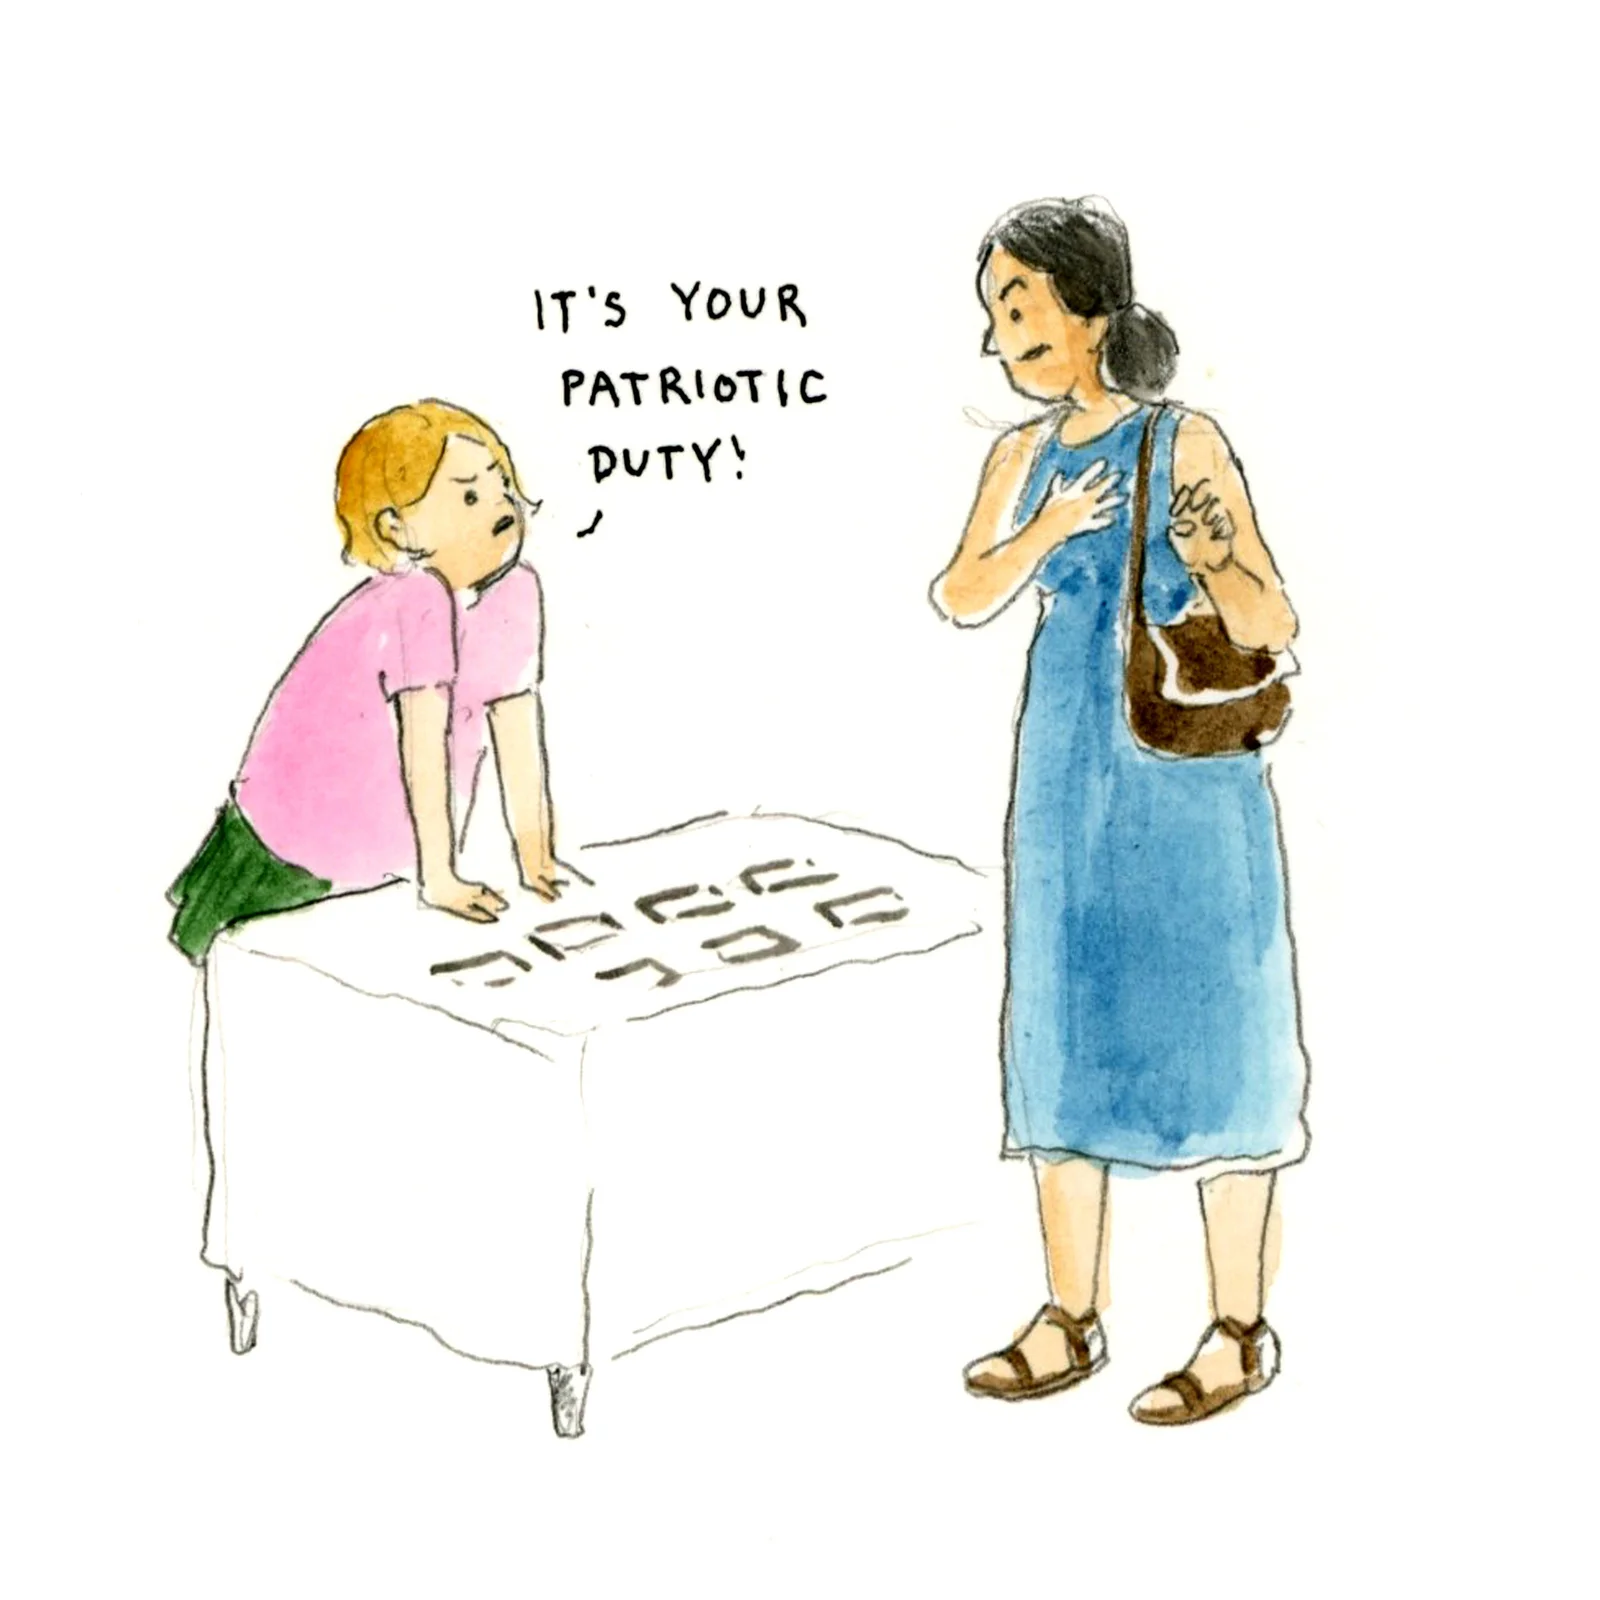 IT'S YOUR
PATRIOTIC
DUTY!